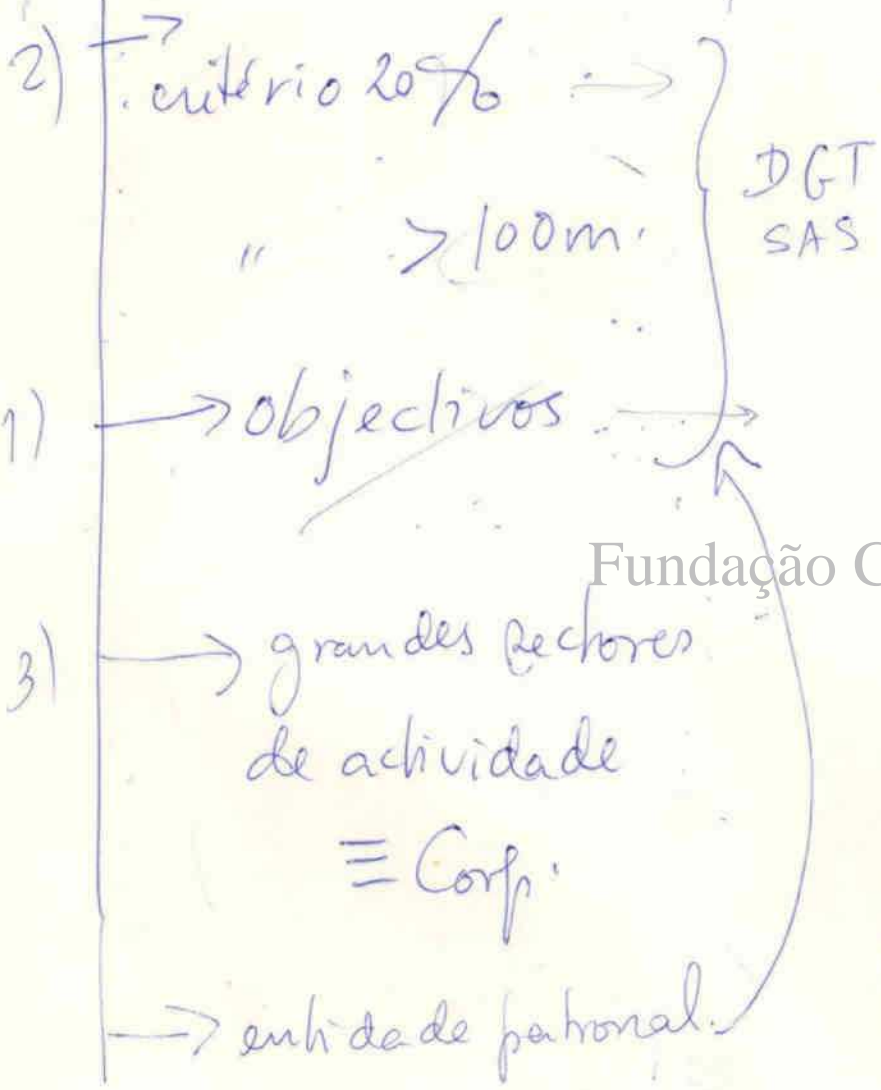 2) → critério 20% →
" > 100m.
DGT
SAS
1) → objectivos →
Fundação C
3) → grandes sectores
de actividade
≡ Corp.
→ entidade patronal.